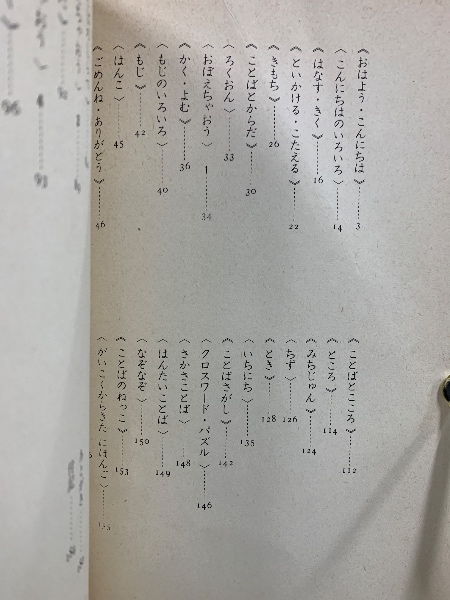 《おはよう・こんにちは》……3
〈こんにちはのいろいろ〉……14
《はなす・きく》……16
《といかける・こたえる》……22
《きもち》……26
《ことばとからだ》……30
〈ろくおん〉……33
〈おぼえちゃおう〉……34
《かく・よむ》……36
〈もじのいろいろ〉……40
《もじ》……42
〈はんこ〉……45
《ごめんね・ありがとう》……46
《ことばとこころ》……112
《ところ》……114
《みちじゅん》……124
〈ちず〉……126
《とき》……128
〈いちにち〉……138
《ことばさがし》……142
〈クロスワード・パズル〉……146
〈さかさことば〉……148
〈はんたいことば〉……149
〈なぞなぞ〉……150
《ことばのねっこ》……153
〈がいこくからきた にほんご〉……155